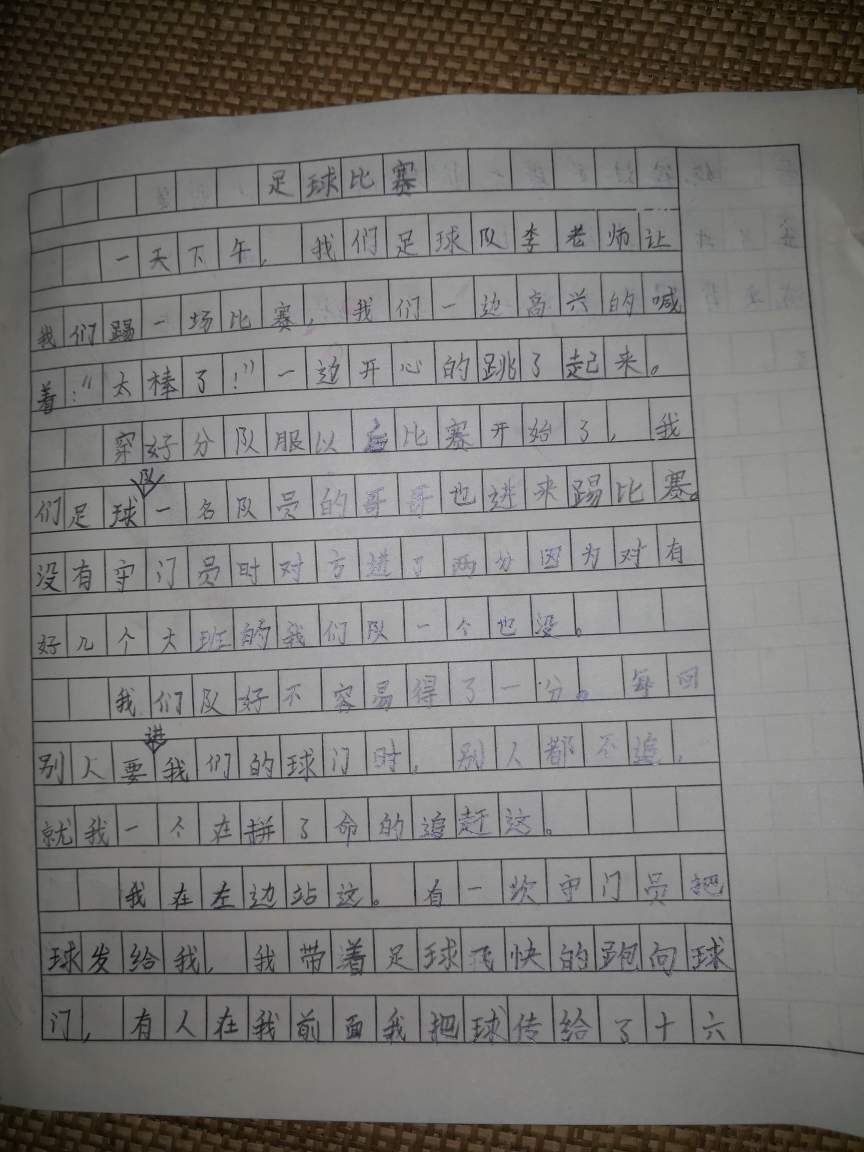 足球比赛
一天下午，我们足球队李老师让
我们踢一场比赛，我们一边高兴的喊
着：“太棒了！”一边开心的跳了起来。
穿好分队服以后比赛开始了，我
们足球队一名队员的哥哥也进来踢比赛。
没有守门员时对方进了两分因为对有
好几个大班的我们队一个也没。
我们队好不容易得了一分。每回
别人要进我们的球门时，别人都不追，
就我一个在拼了命的追赶这。
我在左边站这。有一次守门员把
球发给我，我带着足球飞快的跑向球
门，有人在我前面我把球传给了十六